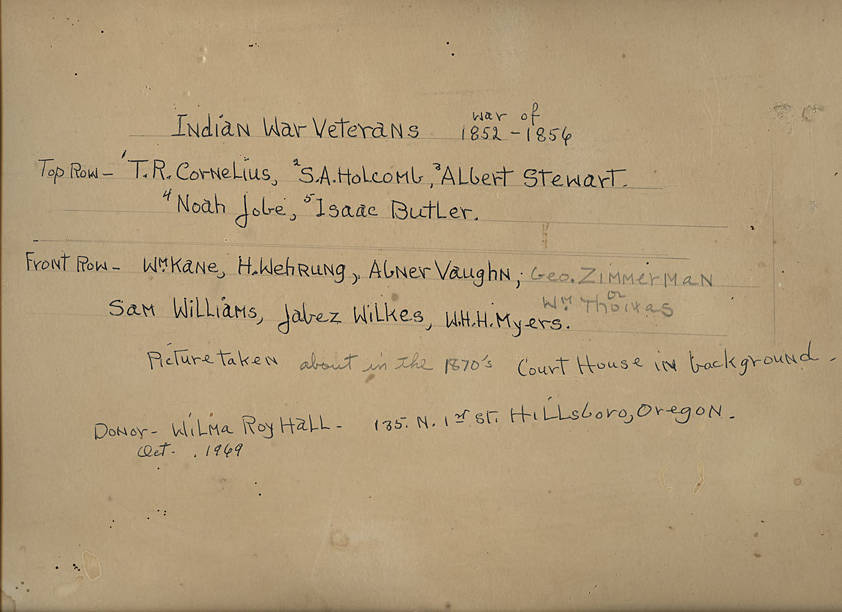 Indian War Veterans war of 1852-1856
Top Row- 1 T.R. Cornelius, 2 S.A. Holcomb, 3 Albert Stewart.
4 Noah Jobe, 5 Isaac Butler.
Front Row- Wm Kane, H. Wehrung, Abner Vaughn, Geo. Zimmerman
or
Sam Williams, Jabez Wilkes, W.H.H. Myers. Wm Thomas
Picture taken about in the 1870's Court House in background.
Donor- Wilma Roy Hall- 135. N. 1st St. Hillsboro, Oregon.
Oct. 1969